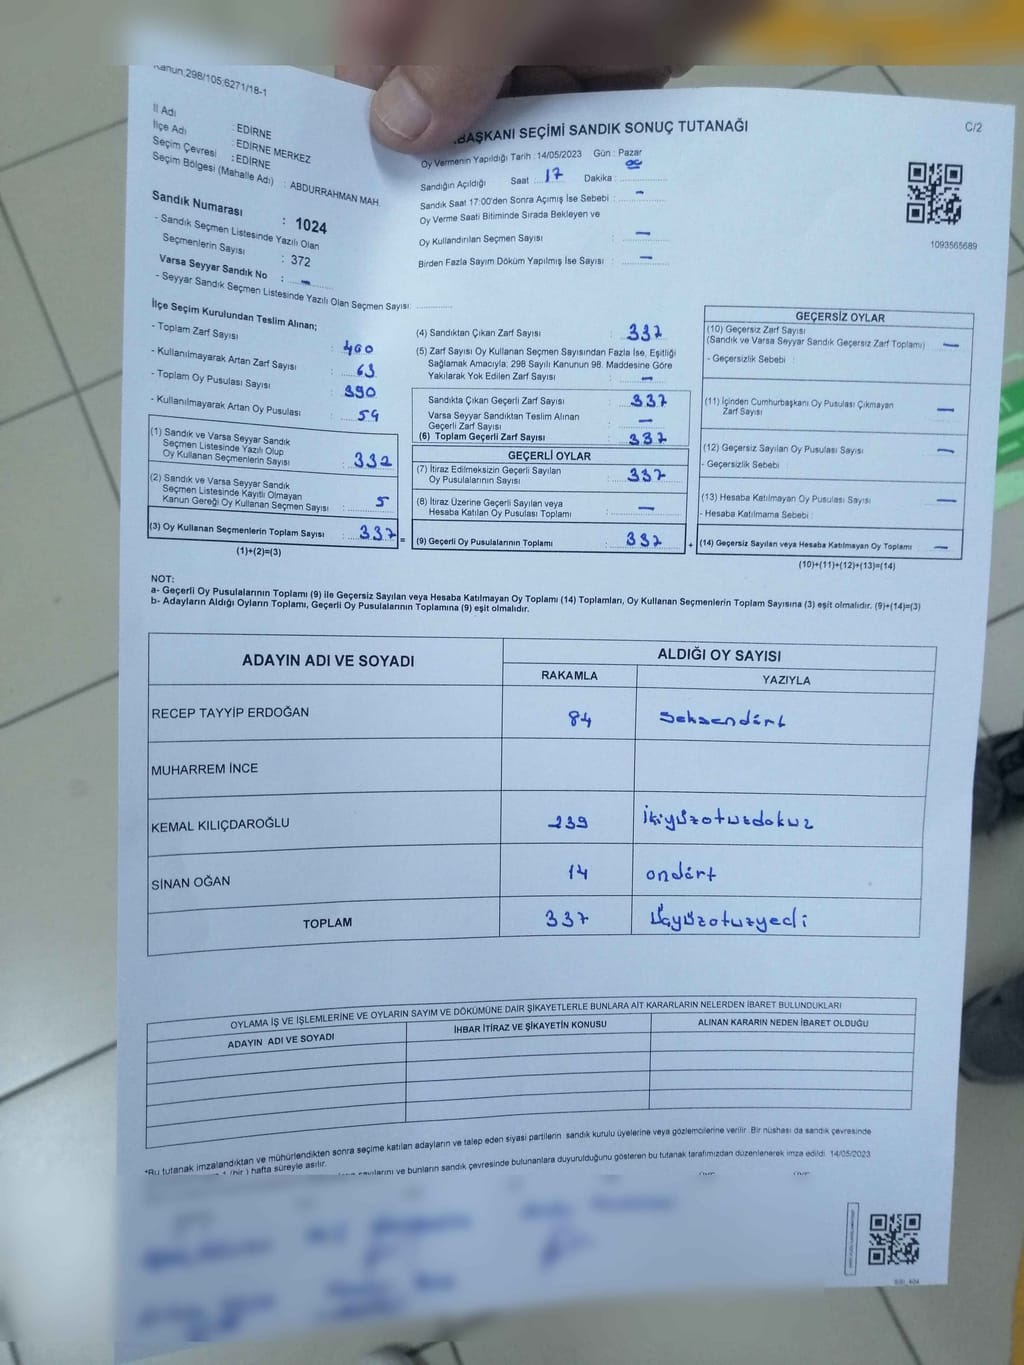 Kanun:298/105,6271/18-1
İl Adı : EDİRNE
İlçe Adı : EDİRNE MERKEZ
Seçim Çevresi : EDİRNE
Seçim Bölgesi (Mahalle Adı) : ABDURRAHMAN MAH.
Sandık Numarası : 1024
- Sandık Seçmen Listesinde Yazılı Olan
Seçmenlerin Sayısı : 372
Varsa Seyyar Sandık No : —
- Seyyar Sandık Seçmen Listesinde Yazılı Olan Seçmen Sayısı:
BAŞKANI SEÇİMİ SANDIK SONUÇ TUTANAĞI
C/2
Oy Vermenin Yapıldığı Tarih : 14/05/2023 Gün : Pazar
Sandığın Açıldığı Saat 17 Dakika : 00
Sandık Saat 17:00'den Sonra Açımış İse Sebebi : —
Oy Verme Saati Bitiminde Sırada Bekleyen ve
Oy Kullandırılan Seçmen Sayısı : —
Birden Fazla Sayım Döküm Yapılmış İse Sayısı : —
1093565689
İlçe Seçim Kurulundan Teslim Alınan;
- Toplam Zarf Sayısı : 400
- Kullanılmayarak Artan Zarf Sayısı : 63
- Toplam Oy Pusulası Sayısı : 390
- Kullanılmayarak Artan Oy Pusulası : 59
(1) Sandık ve Varsa Seyyar Sandık
Seçmen Listesinde Yazılı Olup
Oy Kullanan Seçmenlerin Sayısı : 332
(2) Sandık ve Varsa Seyyar Sandık
Seçmen Listesinde Kayıtlı Olmayan
Kanun Gereği Oy Kullanan Seçmen Sayısı : 5
(3) Oy Kullanan Seçmenlerin Toplam Sayısı : 337 =
(1)+(2)=(3)
(4) Sandıktan Çıkan Zarf Sayısı : 337
(5) Zarf Sayısı Oy Kullanan Seçmen Sayısından Fazla İse, Eşitliği
Sağlamak Amacıyla; 298 Sayılı Kanunun 98. Maddesine Göre
Yakılarak Yok Edilen Zarf Sayısı : —
Sandıkta Çıkan Geçerli Zarf Sayısı : 337
Varsa Seyyar Sandıktan Teslim Alınan
Geçerli Zarf Sayısı : —
(6) Toplam Geçerli Zarf Sayısı : 337
GEÇERLİ OYLAR
(7) İtiraz Edilmeksizin Geçerli Sayılan
Oy Pusulalarının Sayısı : 337
(8) İtiraz Üzerine Geçerli Sayılan veya
Hesaba Katılan Oy Pusulası Toplamı : —
(9) Geçerli Oy Pusulalarının Toplamı : 337 +
GEÇERSİZ OYLAR
(10) Geçersiz Zarf Sayısı
(Sandık ve Varsa Seyyar Sandık Geçersiz Zarf Toplamı) —
- Geçersizlik Sebebi :
(11) İçinden Cumhurbaşkanı Oy Pusulası Çıkmayan
Zarf Sayısı —
(12) Geçersiz Sayılan Oy Pusulası Sayısı —
- Geçersizlik Sebebi :
(13) Hesaba Katılmayan Oy Pusulası Sayısı —
- Hesaba Katılmama Sebebi :
(14) Geçersiz Sayılan veya Hesaba Katılmayan Oy Toplamı : —
(10)+(11)+(12)+(13)=(14)
NOT:
a- Geçerli Oy Pusulalarının Toplamı (9) ile Geçersiz Sayılan veya Hesaba Katılmayan Oy Toplamı (14) Toplamları, Oy Kullanan Seçmenlerin Toplam Sayısına (3) eşit olmalıdır. (9)+(14)=(3)
b- Adayların Aldığı Oyların Toplamı, Geçerli Oy Pusulalarının Toplamına (9) eşit olmalıdır.
ADAYIN ADI VE SOYADI
ALDIĞI OY SAYISI
RAKAMLA YAZIYLA
RECEP TAYYİP ERDOĞAN 84 Seksendört
MUHARREM İNCE
KEMAL KILIÇDAROĞLU 239 İkiyüzotuzdokuz
SİNAN OĞAN 14 ondört
TOPLAM 337 Üçyüzotuzyedi
OYLAMA İŞ VE İŞLEMLERİNE VE OYLARIN SAYIM VE DÖKÜMÜNE DAİR ŞİKAYETLERLE BUNLARA AİT KARARLARIN NELERDEN İBARET BULUNDUKLARI
ADAYIN ADI VE SOYADI İHBAR İTİRAZ VE ŞİKAYETİN KONUSU ALINAN KARARIN NEDEN İBARET OLDUĞU
*Bu tutanak imzalandıktan ve mühürlendikten sonra seçime katılan adayların ve talep eden siyasi partilerin sandık kurulu üyelerine veya gözlemcilerine verilir. Bir nüshası da sandık çevresinde
1 (bir) hafta süreyle asılır.
sayılarını ve bunların sandık çevresinde bulunanlara duyurulduğunu gösteren bu tutanak tarafımızdan düzenlenerek imza edildi. 14/05/2023